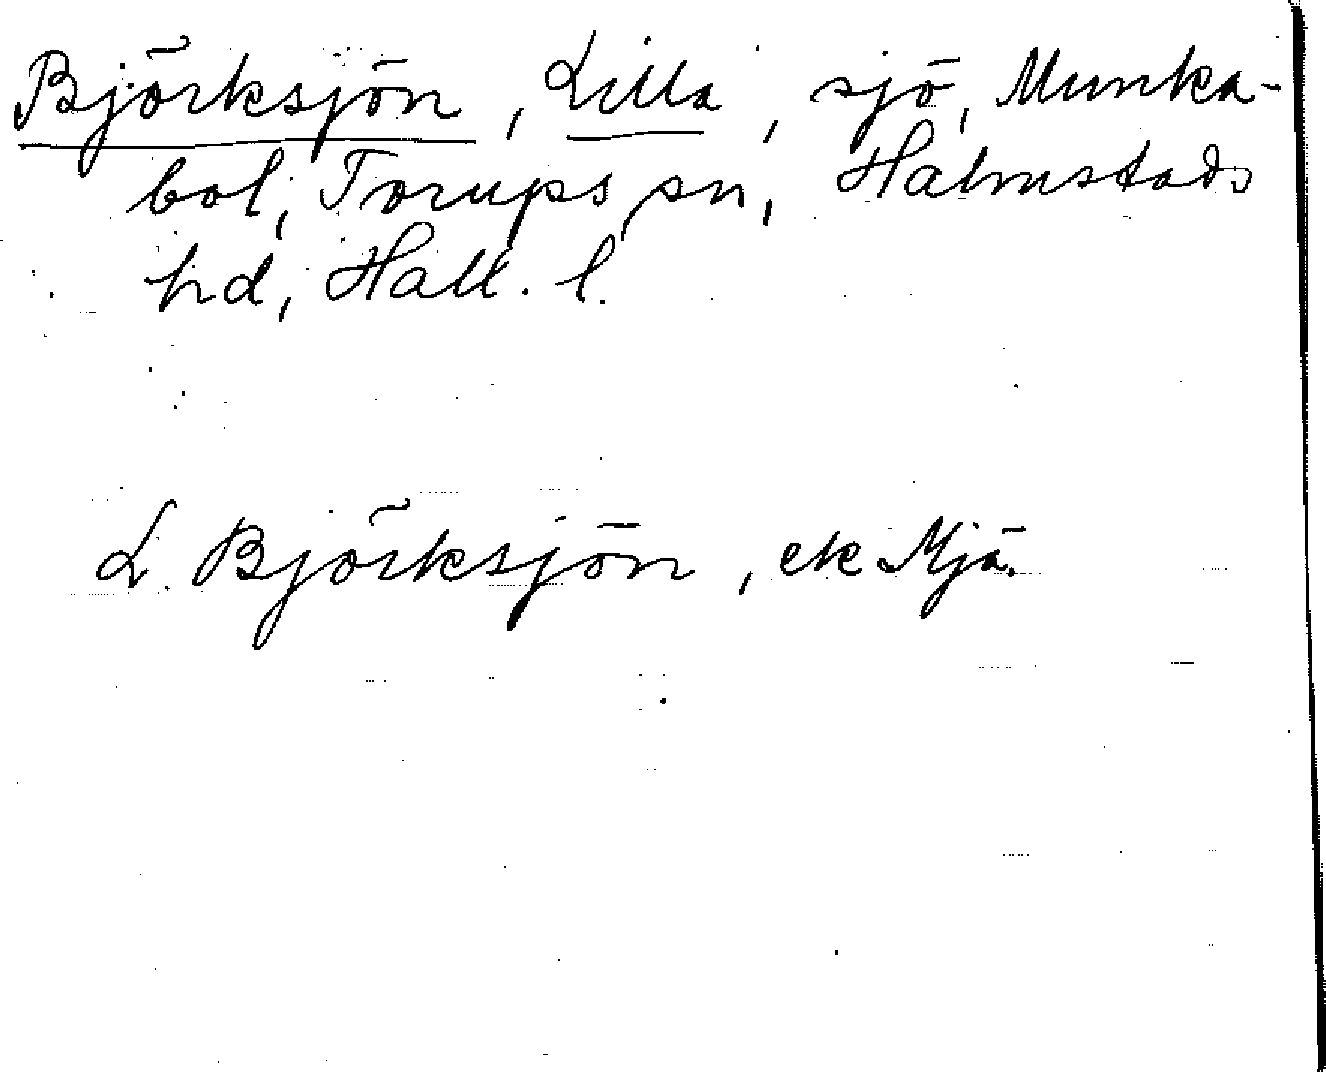 Björksjön, Lilla, sjö, Munka-
bol, Torups sn, Halmstads
hd, Hall. l.
L. Björksjön, ek Mjä.